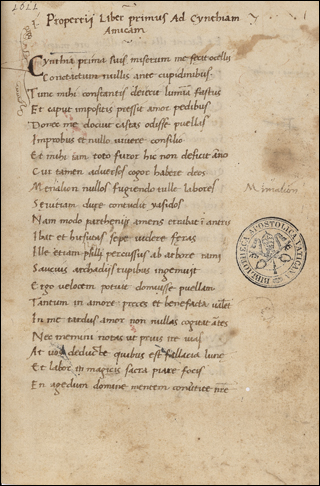 Propertij Liber primus Ad Cynthiam
Amicam
Cynthia prima suis miserum me fecit ocellis
Contactum nullis ante cupidinibus
Tunc mihi constantis deiecit lumina fastus
Et caput impositis pressit amor pedibus
Donec me docuit castas odisse puellas
Improbus et nullo vivere consilio
Et mihi iam toto furor hic non deficit anno
Cur tamen adversos cogor habere deos
Menalion nullos fugiendo tulle labores
Minalion
Sevitiam dure contudit
Nam modo partheniis amens errabat i antris
Ibat et hirsutas sepe videre feras
Ille etiam percussus ab arbore rami
Saucius archadijs rupibus ingemuit
Ergo velocem potuit domuisse puellam
Tantum in amore preces et benefacta valent
In me tardus amor non nullas cogitat artes
Nec meminit notas ut prius ire vias
At vos deductae quibus est fallacia lune
Et labor in magicis sacra piare focis
En agedum domine mentem convertite nre
BIBLIOTECA APOSTOLICA VATICANA